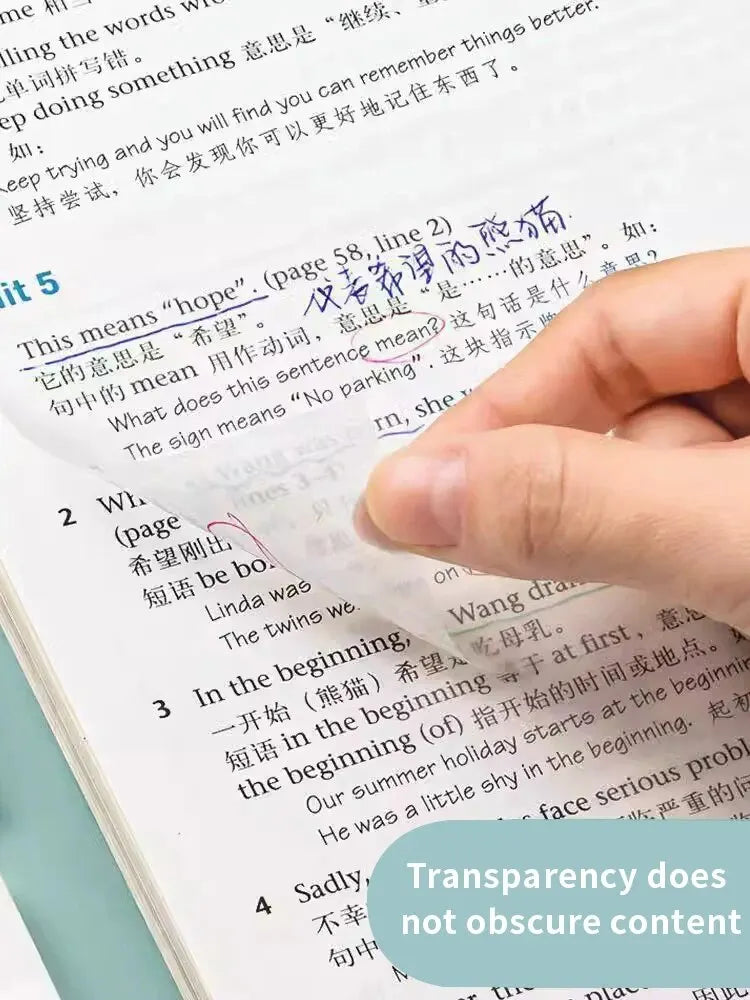 me 相当
lling the words wro
单词拼写错。
ep doing something 意思是“继续、
如：
Keep trying and you will find you can remember things better.
坚持尝试，你会发现你可以更好地记住东西了。
it 5
This means “hope”. (page 58, line 2)
代表希望的熊猫.
它的意思是“希望”。
句中的 mean 用作动词，意思是“是……的意思”。如：
What does this sentence mean? 这句话是什么意思？
The sign means “No parking”. 这块指示牌
rn, she
2 Wh
(page
lines 3-4
希望刚出
短语 be bo
Linda was
on
The twins we
Wang dran
3 In the beginning,
吃母乳。
一开始（熊猫）希望
短语 in the beginning 等于 at first，意思
the beginning (of) 指开始的时间或地点。
Our summer holiday starts at the beginnin
He was a little shy in the beginning. 起初
4 Sadly,
face serious probl
临严重的问
不幸
句中
Transparency does
not obscure content